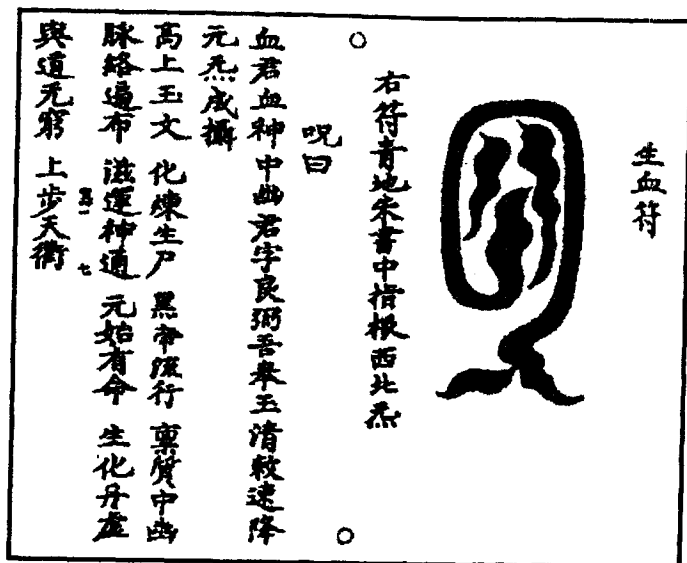 生血符
右符青地朱書中指根西北炁
呪曰
血君血神中幽君字良弼吾奉玉清敕速降
元炁成攝
高上玉文 化煉生尸 黑帝流行 稟質中幽
脉絡遍布 滋運神通 元始有命 生化丹虛
與道无窮 上步天衢